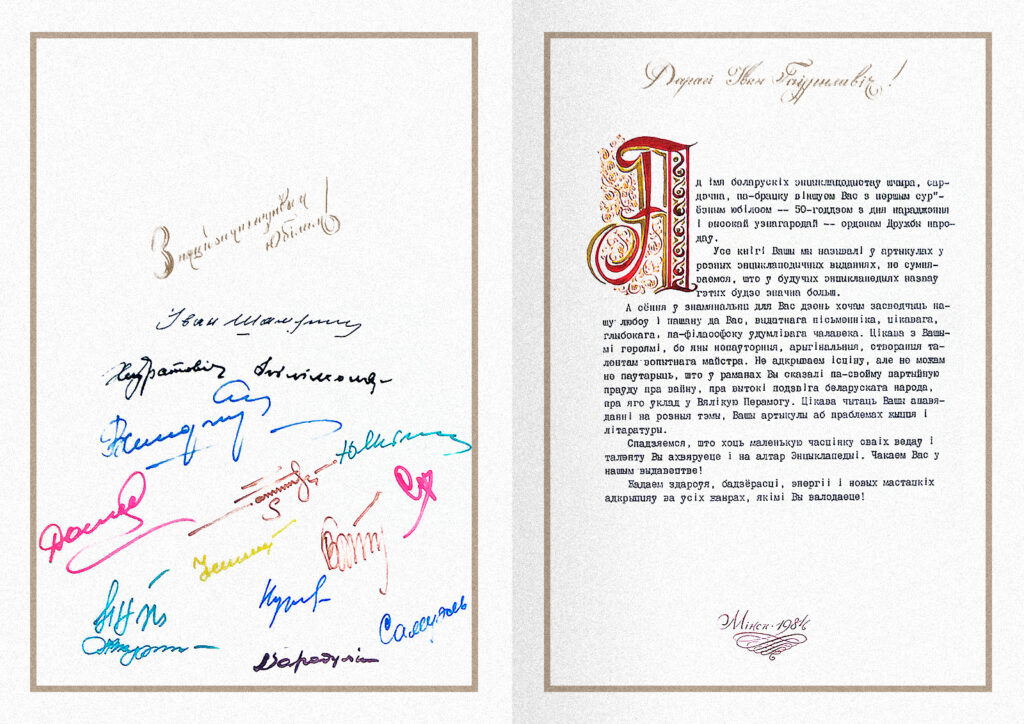 З
Юбілеем!
Іван Шамякін
Хаўратовіч
Самуэль
Дарагі Іван Гаўрылавіч!
Ад імя беларускіх энцыклапедыстаў шчыра, сар-
дэчна, па-брацку віншуем Вас з першым сур"-
ёзным юбілеем -- 50-годдзем з дня нараджэння
і высокай узнагародай -- ордэнам Дружбы наро-
даў.
Усе кнігі Вашы мы называлі ў артыкулах у
розных энцыклапедычных выданнях, не сумня-
ваемся, што ў будучых энцыклапедыях назваў
гэтых будзе значна больш.
А сёння ў знамянальны для Вас дзень хочам засведчыць на-
шу любоў і пашану да Вас, выдатнага пісьменніка, цікавага,
глыбокага, па-філасофску удумлівага чалавека. Цікава з Вашы-
мі героямі, бо яны непаўторныя, арыгінальныя, створаныя та-
лентам вопытнага майстра. Не адкрываем ісціну, але не можам
не паўтарыць, што ў раманах Вы сказалі па-свойму партыйную
праўду пра вайну, пра вытокі подзвіга беларускага народа,
пра яго уклад у Вялікую Перамогу. Цікава чытаць Вашы апавя-
данні на розныя тэмы, Вашы артыкулы аб праблемах жыцця і
літаратуры.
Спадзяемся, што хоць маленькую часцінку сваіх ведаў і
таленту Вы ахвяруеце і на алтар Энцыклапедыі. Чакаем Вас у
нашым выдавецтве!
Жадаем здароўя, бадзёрасці, энергіі і новых мастацкіх
адкрыццяў ва усіх жанрах, якімі Вы валодаеце!
Мінск-1984